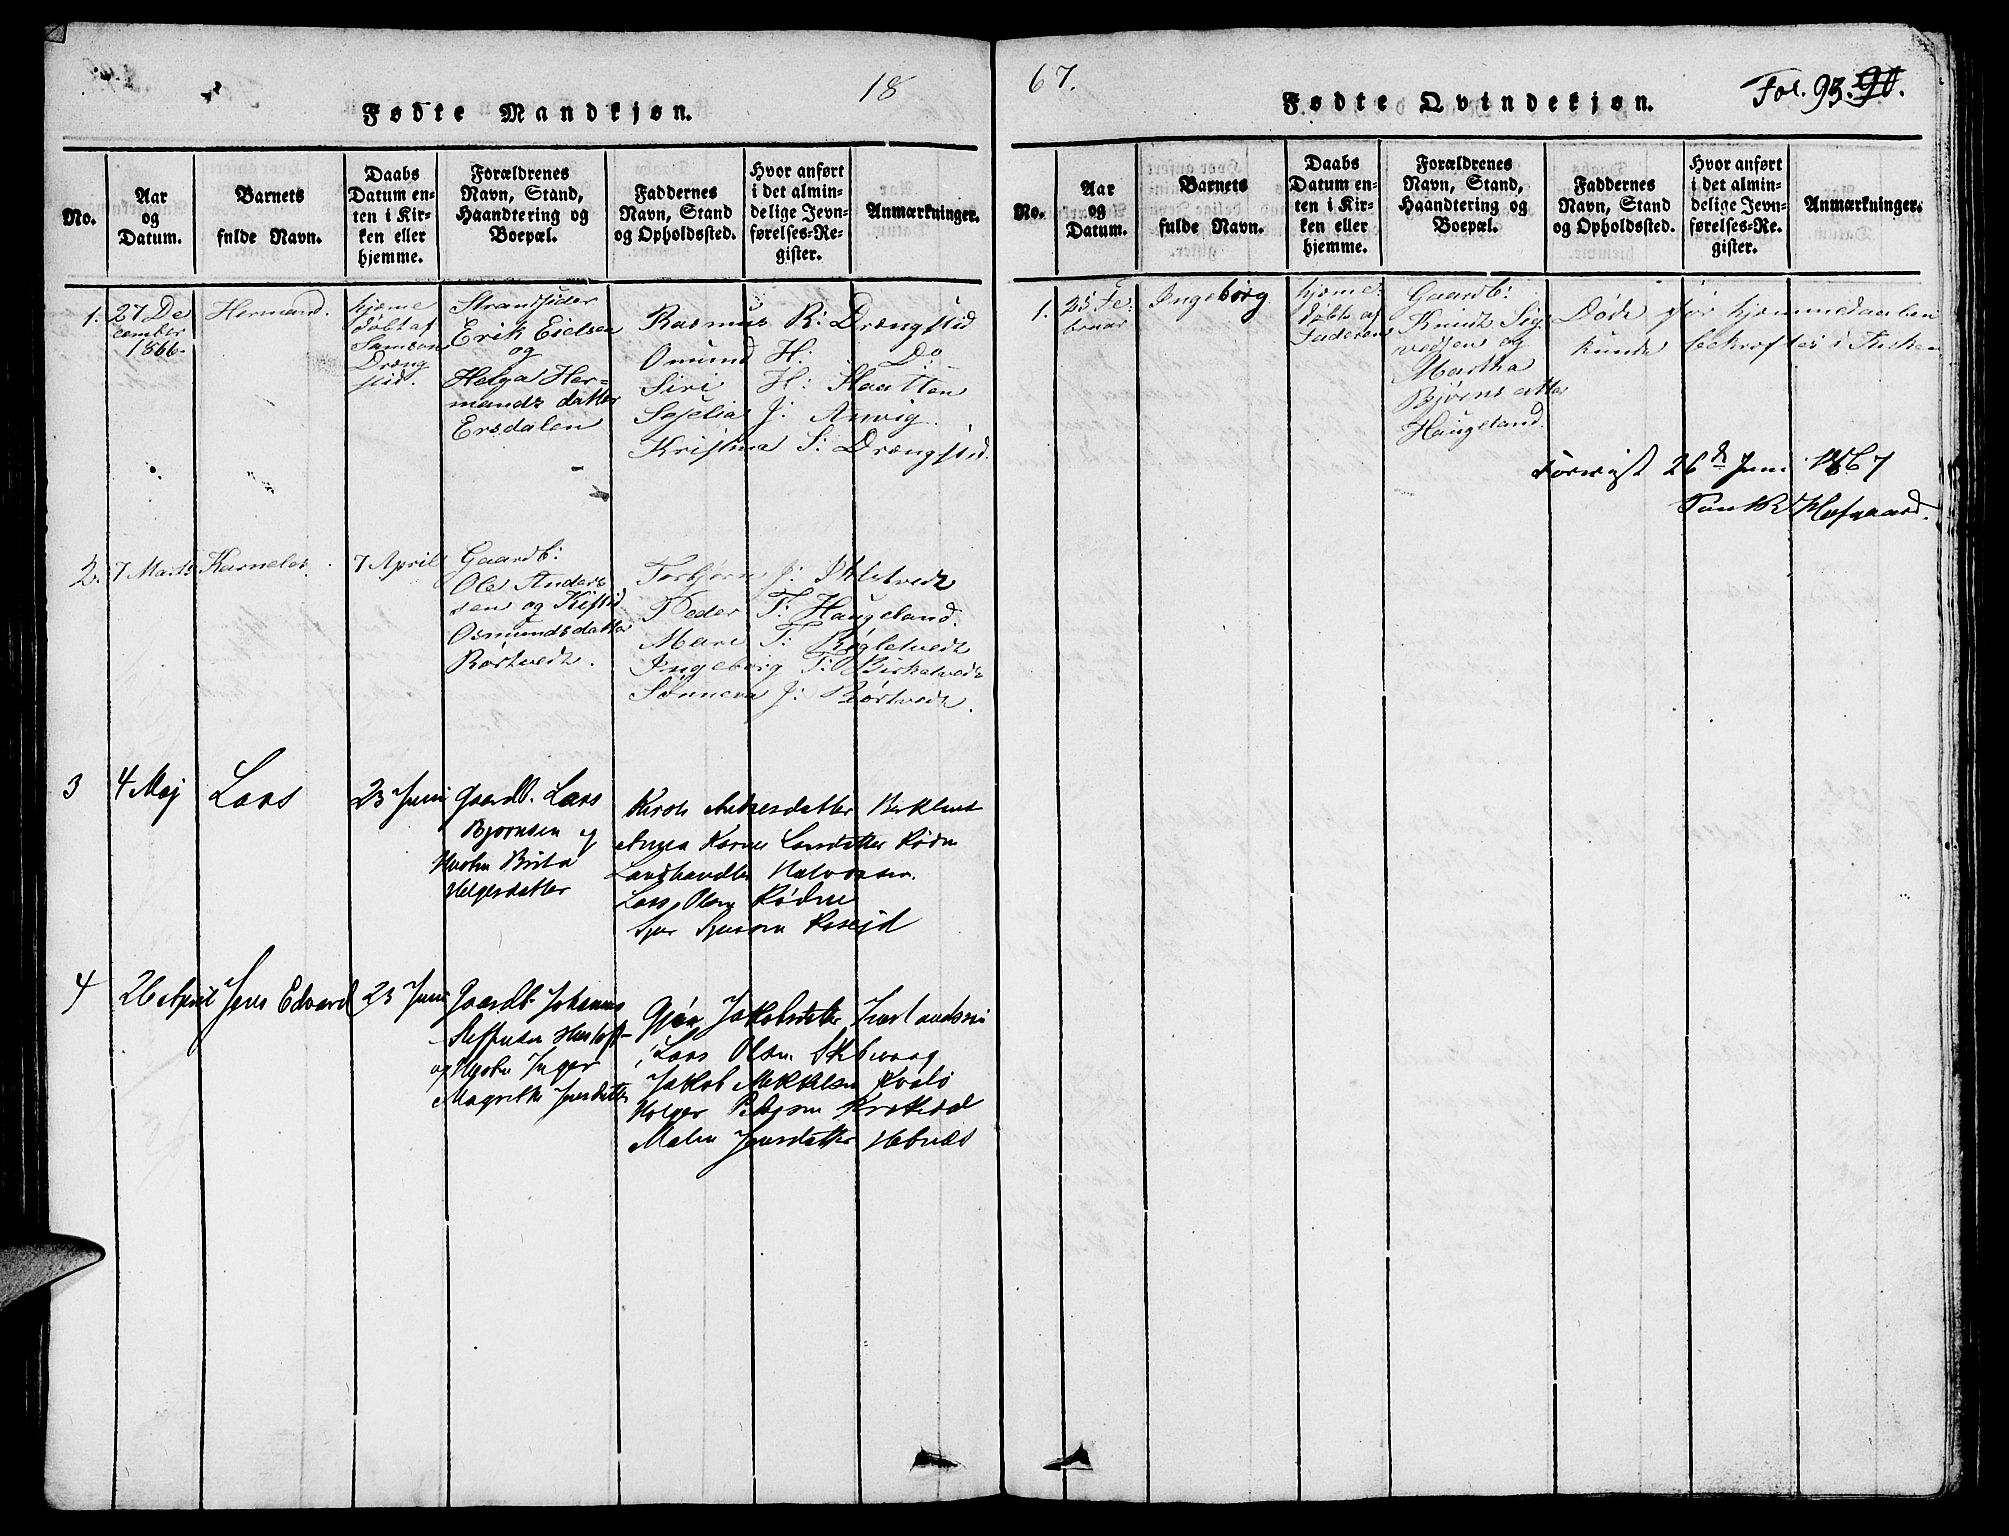 18
Fødte Mandkjøn.
No.
Aar
og
Datum.
Barnets
fulde Navn.
Daabs
Datum en-
ten i Kir-
ken eller
hjemme.
Forældrenes
Navn, Stand,
Haandtering og
Boepæl.
Faddernes
Navn, Stand
og Opholdssted.
Hvor anført
i det almin-
delige Jevn-
førelses-Re-
gister.
Anmærkninger.
1.
27 De
cember
1866.
Hermand.
hjeme
døbt af
Samson
Dræng
stid.
Strandsider
Erik Eielsen
og
Helga Her-
mands datter
Ersdalen
Rasmus R: Drængstid
Omund H: Do
Siri H: Slaatten
Sejelia J: Anvig.
Kristina S: Drængstid.
2.
7 Marts
Karneles.
7 April
Gaardb:
Ole Anders
sen og Kistid
Osmundsdatter
Børtvedt.
Torbjørn J:
Peder T: Haugeland.
Mari T: Bøgletvedt
Ingeborg T: Birketvedt
Sønneva J: Børtvedt.
3
4 Maj
Lars
23 Juni
Gaardb. Lars
Bjørnsen og
Hustru Brita
Helgesdatter
Andersdatter
Anna Larsdatter Rødne
Landhandler Halvorsen.
Lars Olsen Rødne
4
26 April
Jens Edvard
23 Juni
Gaardb. Johannes
og Hustru Inger
Magrethe Jensdatter
Jakobsdatter
Lars Olsen
Jakob Mikkelsen
Holger
Malene Jensdatter Hebnæs
67.
Fødte Qvindekjøn.
Fol. 93. 90.
No.
Aar
og
Datum.
Barnets
fulde Navn.
Daabs
Datum en-
ten i Kir-
ken eller
hjemme.
Forældrenes
Navn, Stand,
Haandtering og
Boepæl.
Faddernes
Navn, Stand
og Opholdssted.
Hvor anført
i det almin-
delige Jevn-
førelses-Re-
gister.
Anmærkninger.
1.
25 Fe-
bruar
Ingeborg
hjeme
døbt af
Faderen
Gaardb:
Knudt Sig-
vedsen og
Martha
Bjørns datter
Haugeland.
Døde før hjemmedaaben
kunde bekræftes i Kirken
Forevist 26de Juni 1867